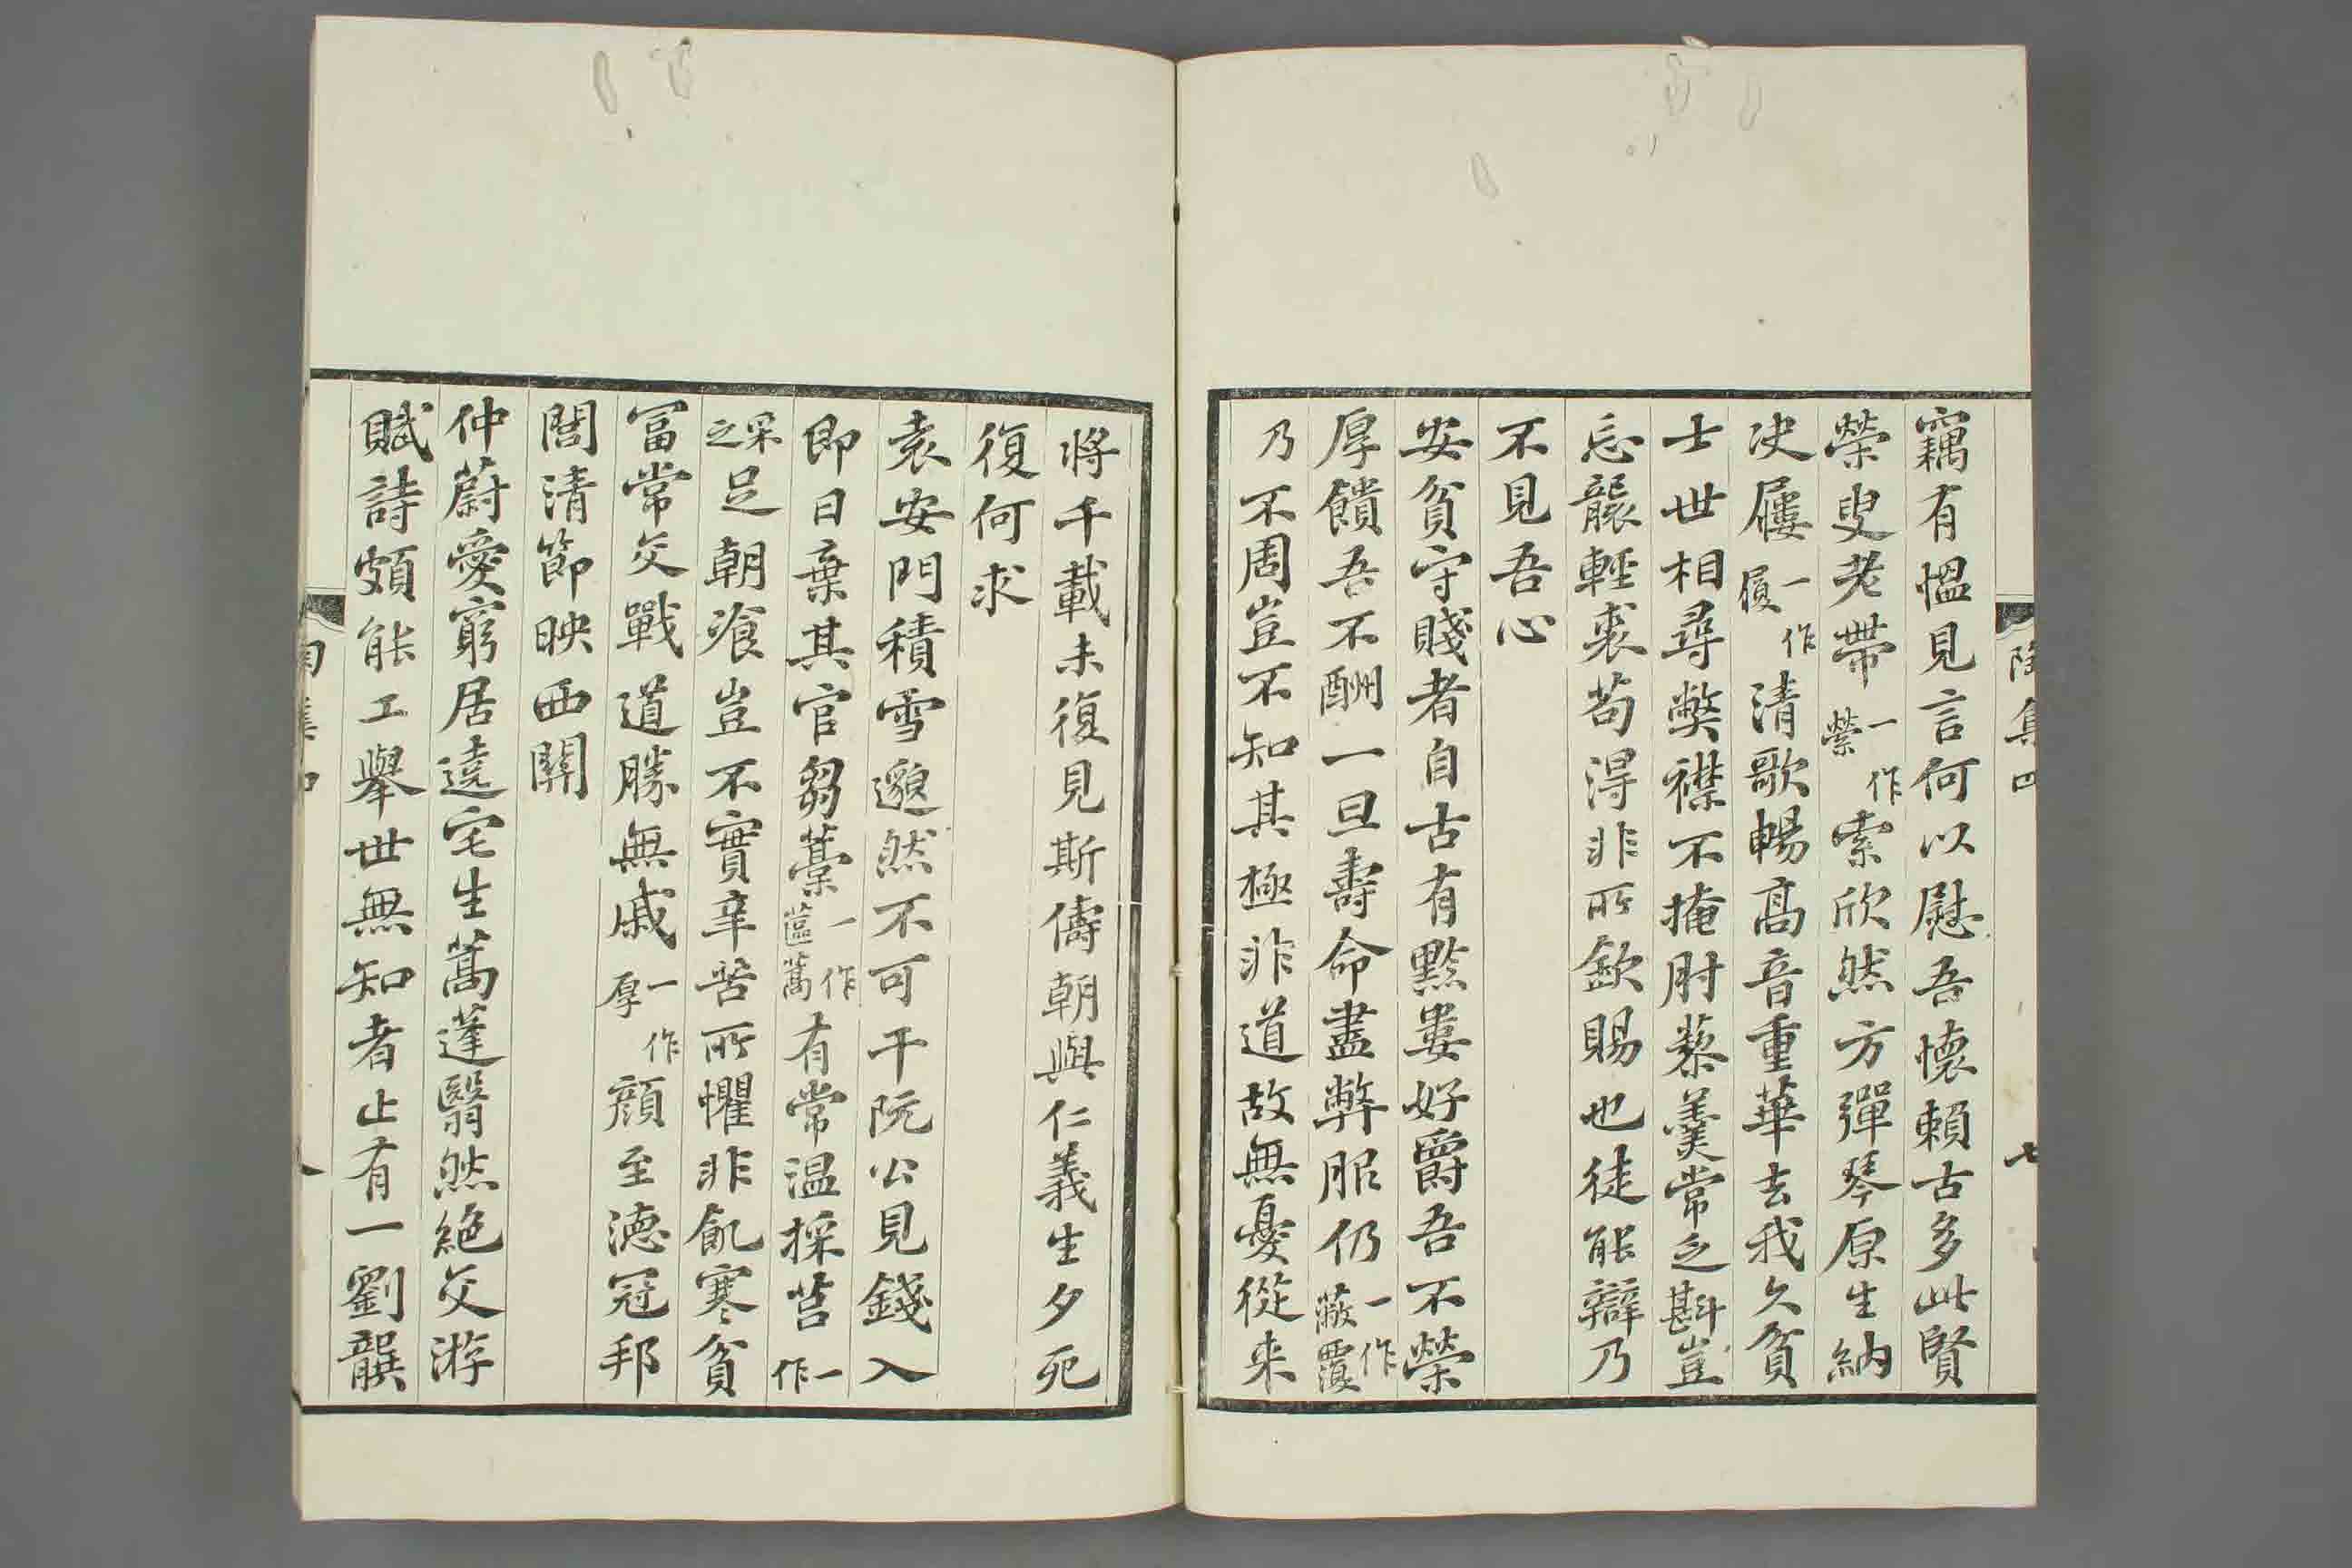 陶集四
七
竊有愠見言何以慰吾懷賴古多此賢
榮叟老帶一作縈索欣然方彈琴原生納
决屨一作履清歌暢高音重華去我久貧
士世相尋獘襟不掩肘藜羹常乏斟豈
忘襲輕裘苟得非所欽賜也徒能辯乃
不見吾心
安貧守賤者自古有黔婁好爵吾不榮
厚饋吾不酬一旦壽命盡弊服仍一作蔽覆
乃不周豈不知其極非道故無憂從来
將千載未復見斯儔朝與仁義生夕死
復何求
袁安門積雪邈然不可干阮公見錢入
即日棄其官芻藁一作蒀蒿有常温採莒一作
采之足朝飡豈不實辛苦所懼非飢寒貧
冨常交戰道勝無戚一作厚顔至德冠邦
閭清節映西關
仲蔚愛窮居遶宅生蒿蓬翳然絶交游
賦詩頗能工舉世無知者止有一劉龔